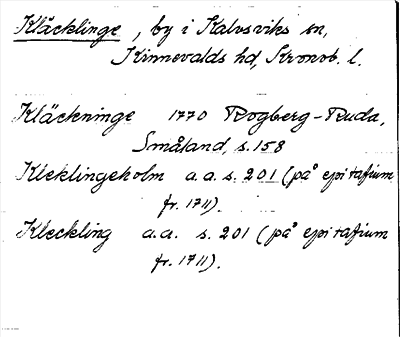 Kläcklinge, by i Kalvsviks sn,
Kinnevalds hd, Kronob. l.
Kläckninge 1770 Rogberg-Ruda,
Småland, s. 158
Kleklingeholm a. a. s. 201 (på epitafium
fr. 1711).
Kleckling a. a. s. 201 (på epitafium
fr. 1711).